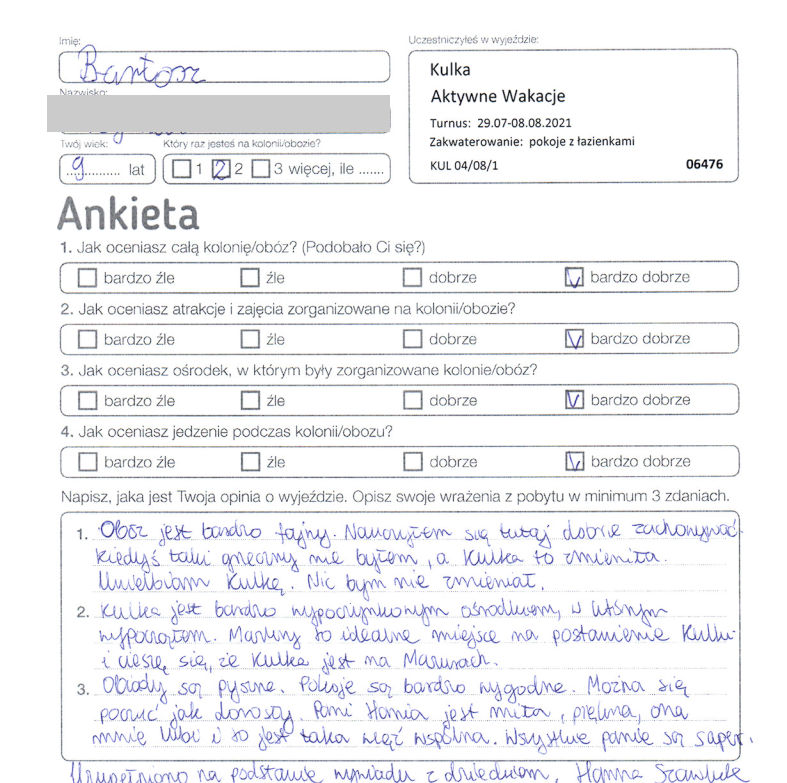 Imię:
Bartosz
Uczestniczyłeś w wyjeździe:
Kulka
Aktywne Wakacje
Turnus: 29.07-08.08.2021
Zakwaterowanie: pokoje z łazienkami
KUL 04/08/1 06476
Nazwisko:
Twój wiek: Który raz jesteś na kolonii/obozie?
..9.......... lat 1 2 2 3 więcej, ile .......
Ankieta
1. Jak oceniasz całą kolonię/obóz? (Podobało Ci się?)
bardzo źle źle dobrze V bardzo dobrze
2. Jak oceniasz atrakcje i zajęcia zorganizowane na kolonii/obozie?
bardzo źle źle dobrze V bardzo dobrze
3. Jak oceniasz ośrodek, w którym były zorganizowane kolonie/obóz?
bardzo źle źle dobrze V bardzo dobrze
4. Jak oceniasz jedzenie podczas kolonii/obozu?
bardzo źle źle dobrze V bardzo dobrze
Napisz, jaka jest Twoja opinia o wyjeździe. Opisz swoje wrażenia z pobytu w minimum 3 zdaniach.
1. Obóz jest bardzo fajny. Nauczyłem się tutaj dobrze zachowywać.
Kiedyś taki grzeczny nie byłem, a Kulka to zmieniła.
Uwielbiam Kulkę. Nic bym nie zmieniał.
2. Kulka jest bardzo wypoczynkowym ośrodkiem, w którym
wypocząłem. Mazury to idealne miejsce na postawienie Kulki
i cieszę się, że Kulka jest na Mazurach.
3. Obiady są pyszne. Pokoje są bardzo wygodne. Można się
poczuć jak dorosły. Pani Hania jest miła, piękna, ona
mnie lubi i to jest taka więź wspólna. Wszystkie panie są super.
Uzupełniono na podstawie wywiadu z dzieckiem, Hanna